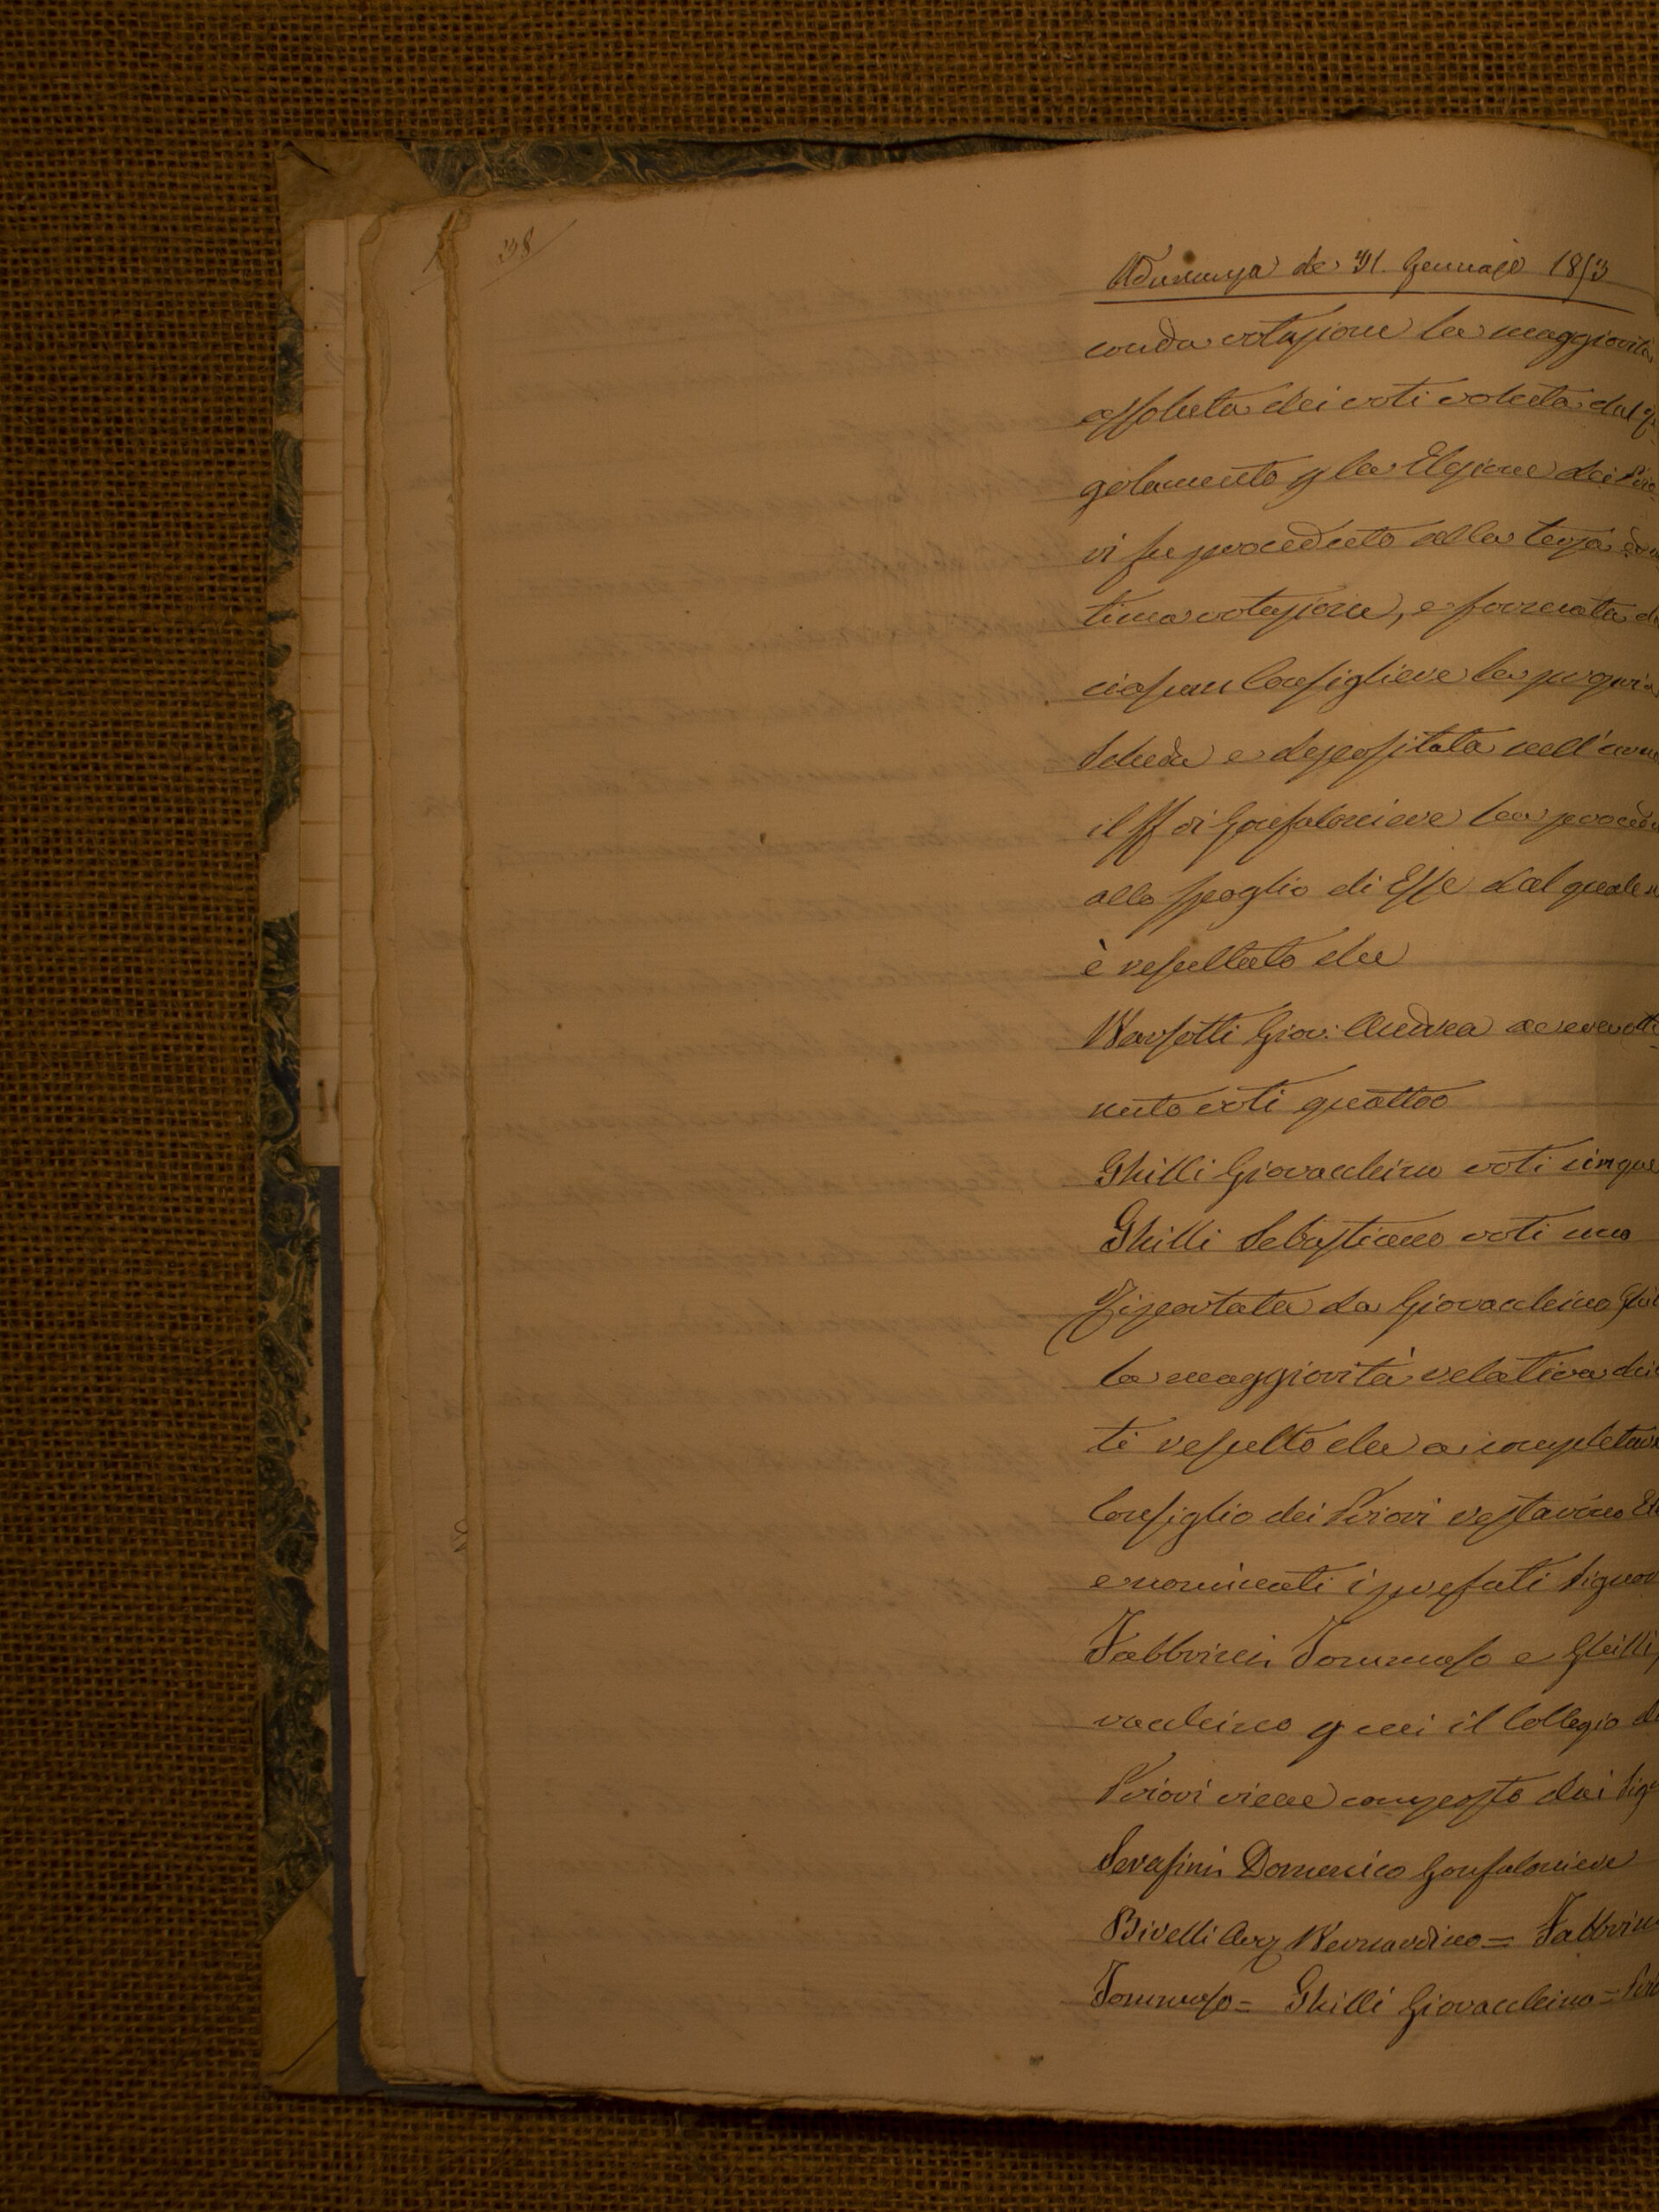 38
Adunanza de' 31. Gennajo 1853
conda votazione la maggiorità
assoluta dei voti voluta dal
golamento p la Elezione dei Prio
ri fu proceduto alla terza ed
tima votazione, e formata d
ciascun Consigliere la propria
Scheda e depositata nell'urna
il ff di Gonfaloniere ha procedu
allo spoglio di Esse dal quale n
è resultato che
Barsotti Giov: Andrea aveva otte
nuto voti quattro
Ghilli Giovacchino voti cinque
Ghilli Sebastiano voti uno
Riportata da Giovacchino Ghil
la maggiorità relativa dei
ti resultò che a completare
Consiglio dei Priori restarono El
e nominati i prefati Signor
Fabbrini Tommaso e Ghilli
vacchino p cui il Collegio de
Priori viene composto dai Sigr
Serafini Domenico Gonfaloniere
Birelli Bernardino = Fabbrini
Tommaso = Ghilli Giovacchino =